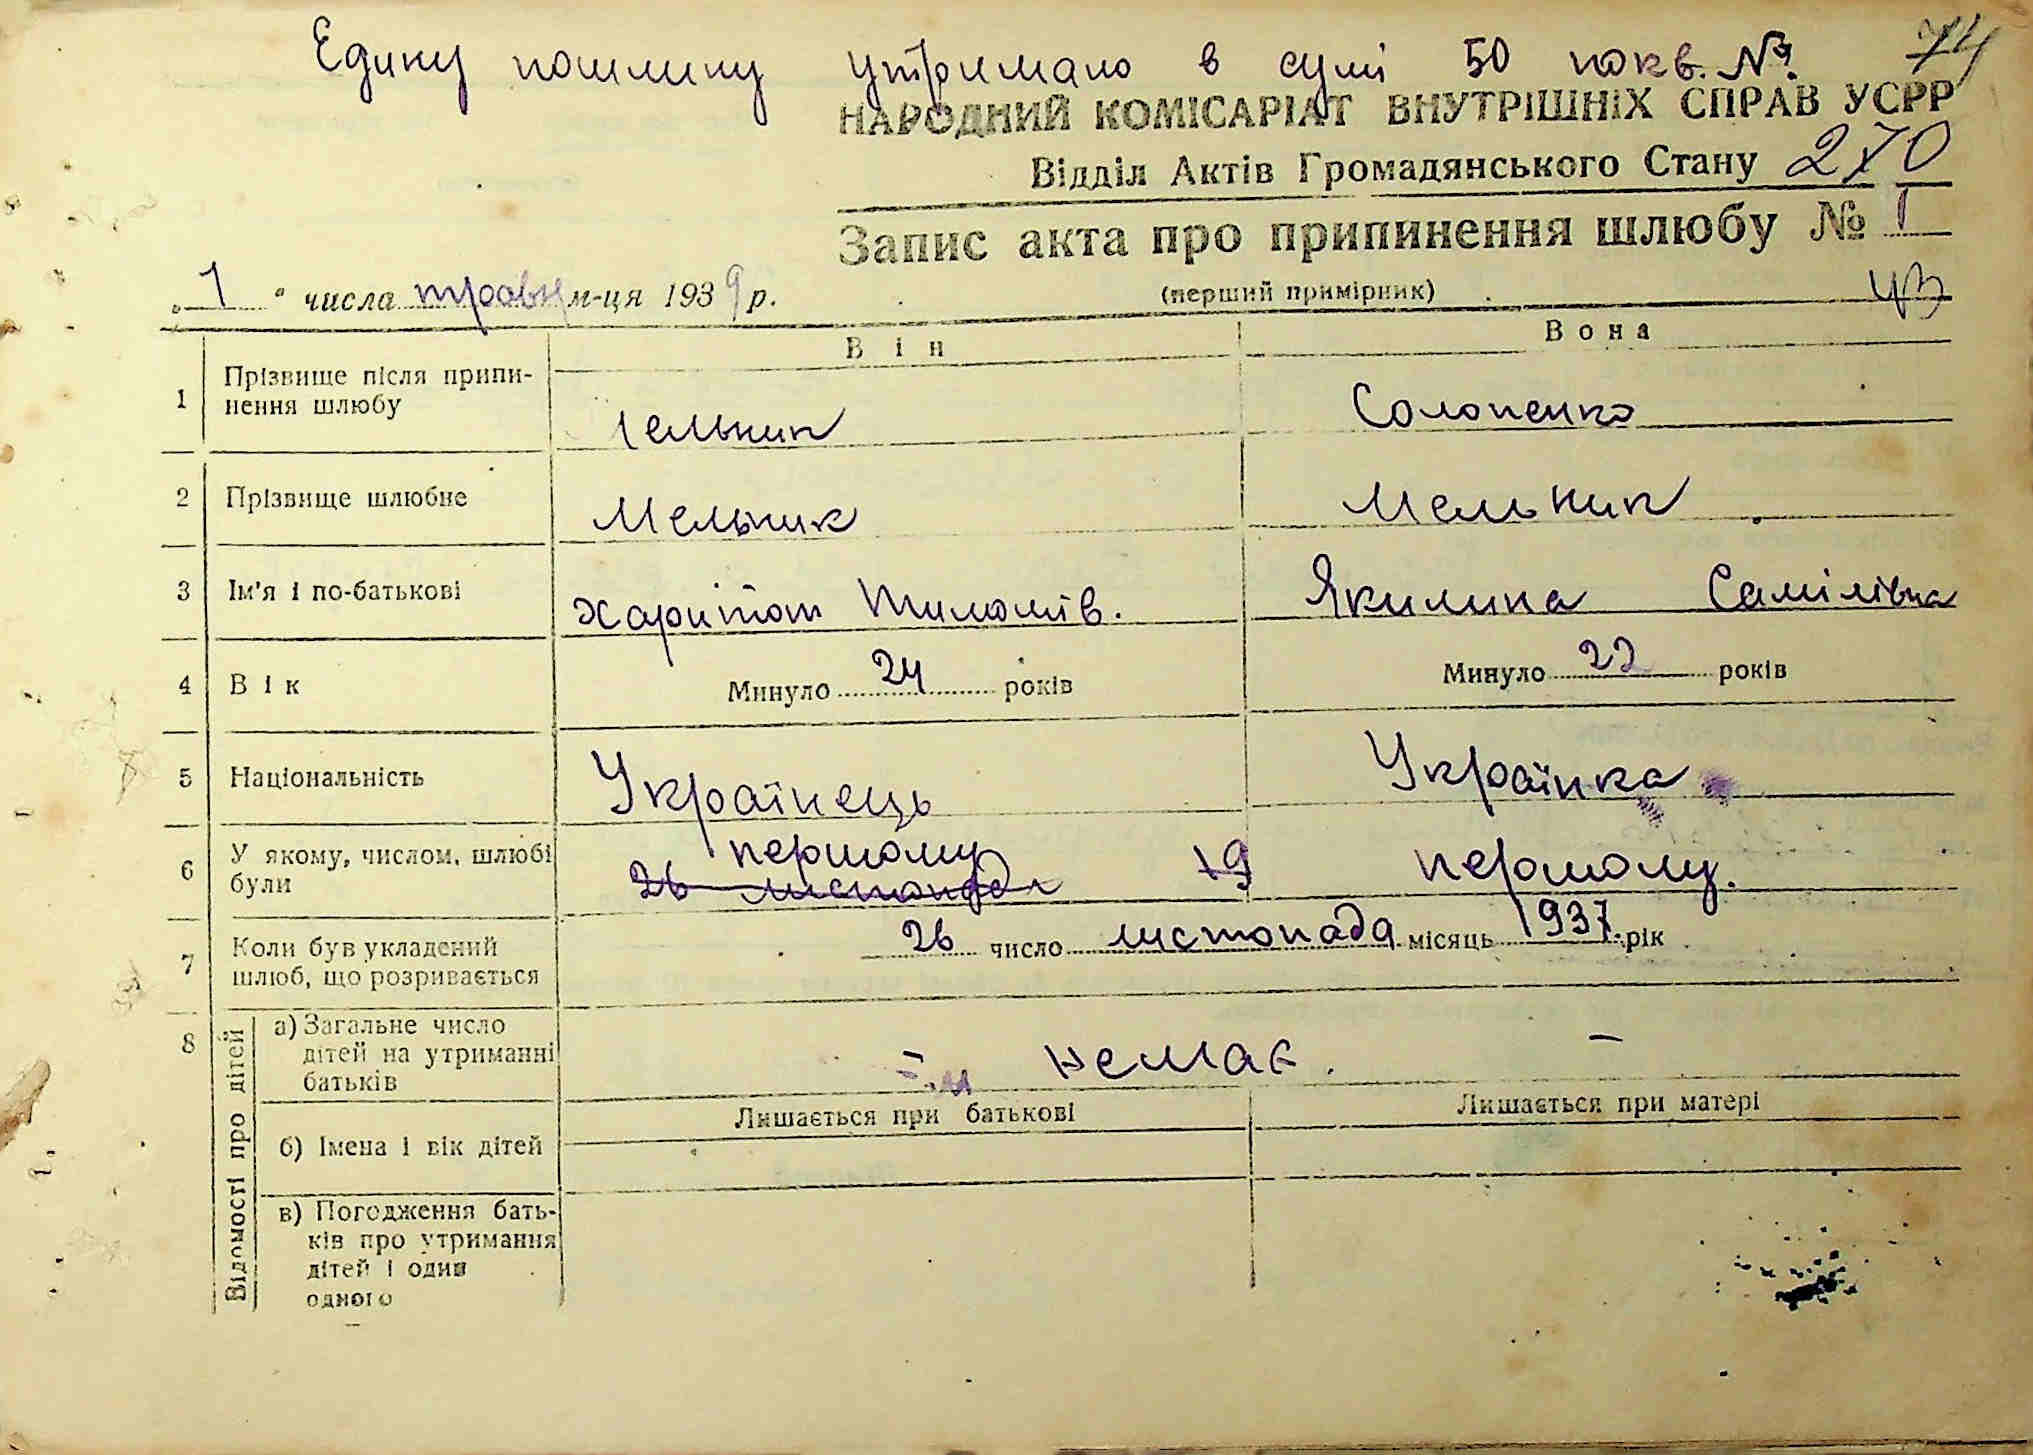 Едину пошлину утримано в сумі 50 по кв. №
74
НАРОДНИЙ КОМІСАРІАТ ВНУТРІШНІХ СПРАВ УСРР
Відділ Актів Громадянського Стану 270
Запис акта про припинення шлюбу № 1
„ 1 “ числа травня м-ця 1939 р.
(перший примірник)
43
Він Вона
1 Прізвище після припи-
нення шлюбу
Мельник Солопенко
2 Прізвище шлюбне Мельник Мельник
3 Ім'я і по-батькові Харитон Якилина Самілівна
4 Вік Минуло 24 років Минуло 22 років
5 Національність Українець Українка
6 У якому, числом, шлюбі
були
першому першому.
26 листопада 19
7 Коли був укладений
шлюб, що розривається
26 число листопада місяць 1937 рік
8 Відомості про дітей
а) Загальне число
дітей на утриманні
батьків
немає. –
Лишається при батькові Лишається при матері
б) Імена і вік дітей
в) Погодження бать-
ків про утримання
дітей і один
одного